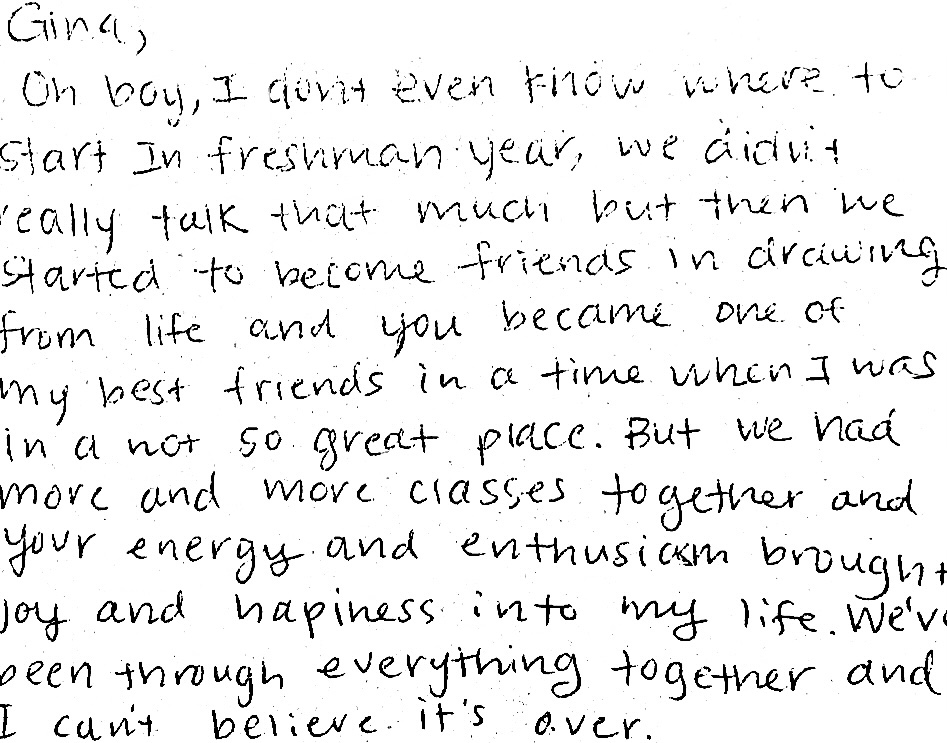 Gina,
Oh boy, I don't even know where to
start In freshman year, we didn't
really talk that much but then we
started to become friends in drawing
from life and you became one of
my best friends in a time when I was
in a not so great place. But we had
more and more classes together and
your energy and enthusiasm brought
joy and hapiness into my life. We've
been through everything together and
I can't believe it's over.